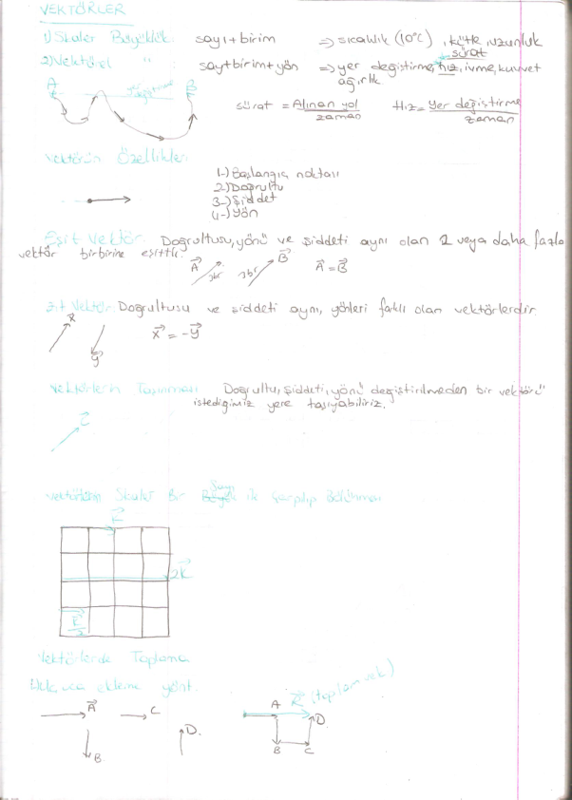 VEKTÖRLER
1) Skaler Büyüklük sayı+birim ⇒ sıcaklık (10°C), kütle, uzunluk
sürat
2) Vektörel " sayı+birim+yön ⇒ yer değiştirme, hız, ivme, kuvvet
ağırlık
A B
sürat = Alınan yol / zaman Hız = Yer değiştirme / zaman
Vektörün Özellikleri
1-) Başlangıç noktası
2-) Doğrultu
3-) Şiddet
4-) Yön
Eşit Vektör: Doğrultusu, yönü ve şiddeti aynı olan 2 veya daha fazla
vektör birbirine eşittir.
A⃗ 2br 2br B⃗ A⃗ = B⃗
Zıt Vektör Doğrultusu ve şiddeti aynı, yönleri faklı olan vektörlerdir.
x⃗ y⃗ x⃗ = -y⃗
Vektörlerin Taşınması Doğrultu, şiddeti, yönü değiştirilmeden bir vektörü
istediğimiz yere taşıyabiliriz.
Sayı
Vektörlerin Skaler Bir ile Çarpılıp Bölünmesi
K⃗
2K⃗
K⃗/2
Vektörlerde Toplama
Uc uca ekleme yönt.
A⃗ C B D
A R⃗ (toplam vek) D B C